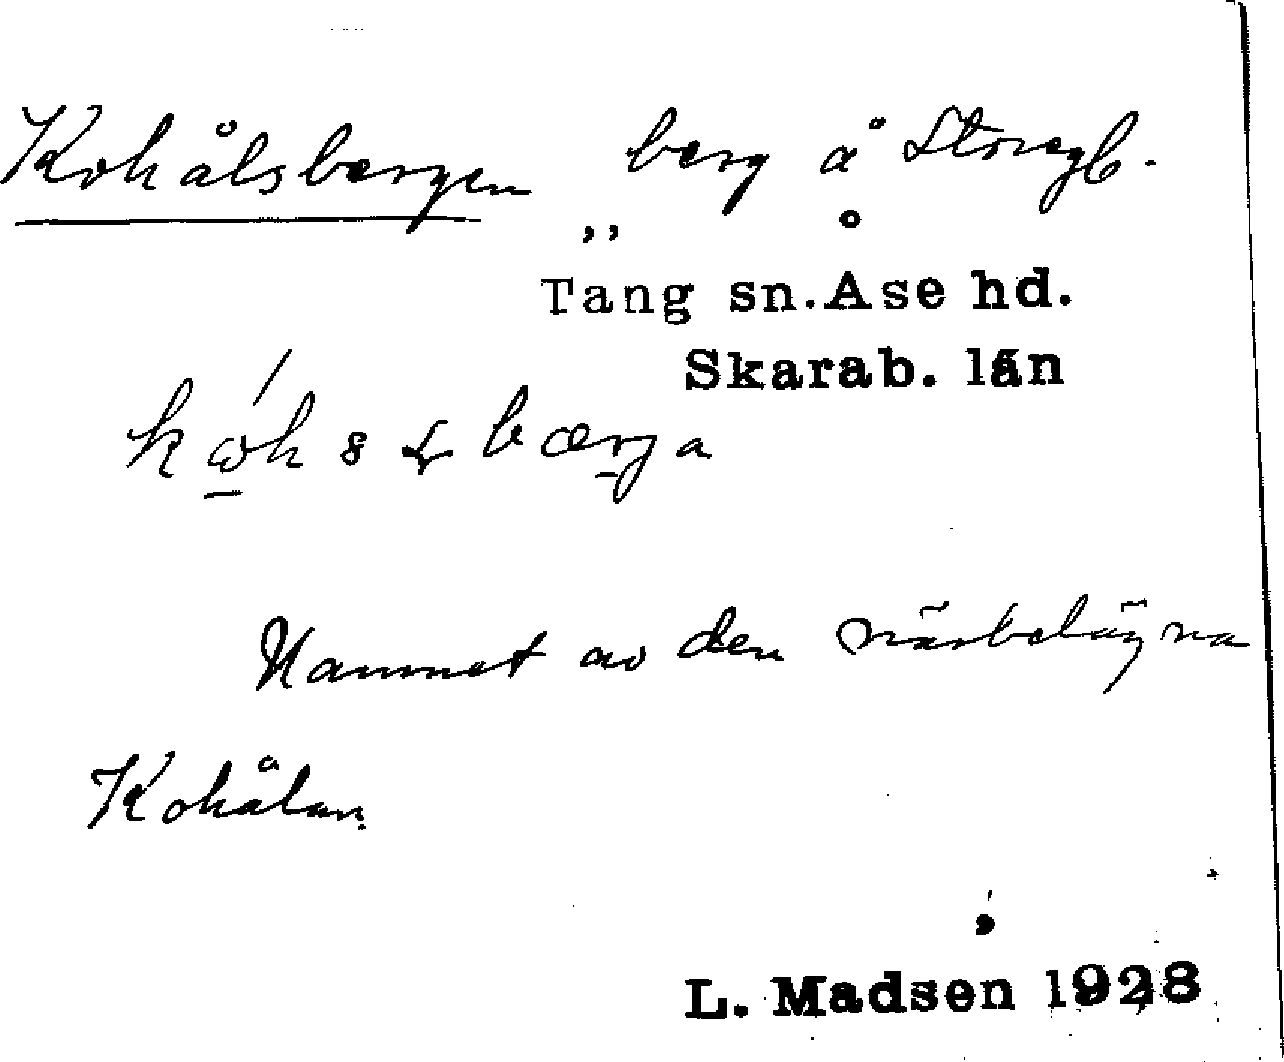 Kohålsbergen berg å Storegb.
Täng sn. Åse hd.
Skarab. län
Namnet av den närbelägna
Kohålan.
L. Madsen 1928